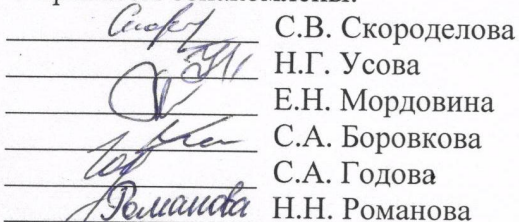 ознакомлены.
С.В. Скороделова
Н.Г. Усова
Е.Н. Мордовина
С.А. Боровкова
С.А. Годова
Романова Н.Н. Романова